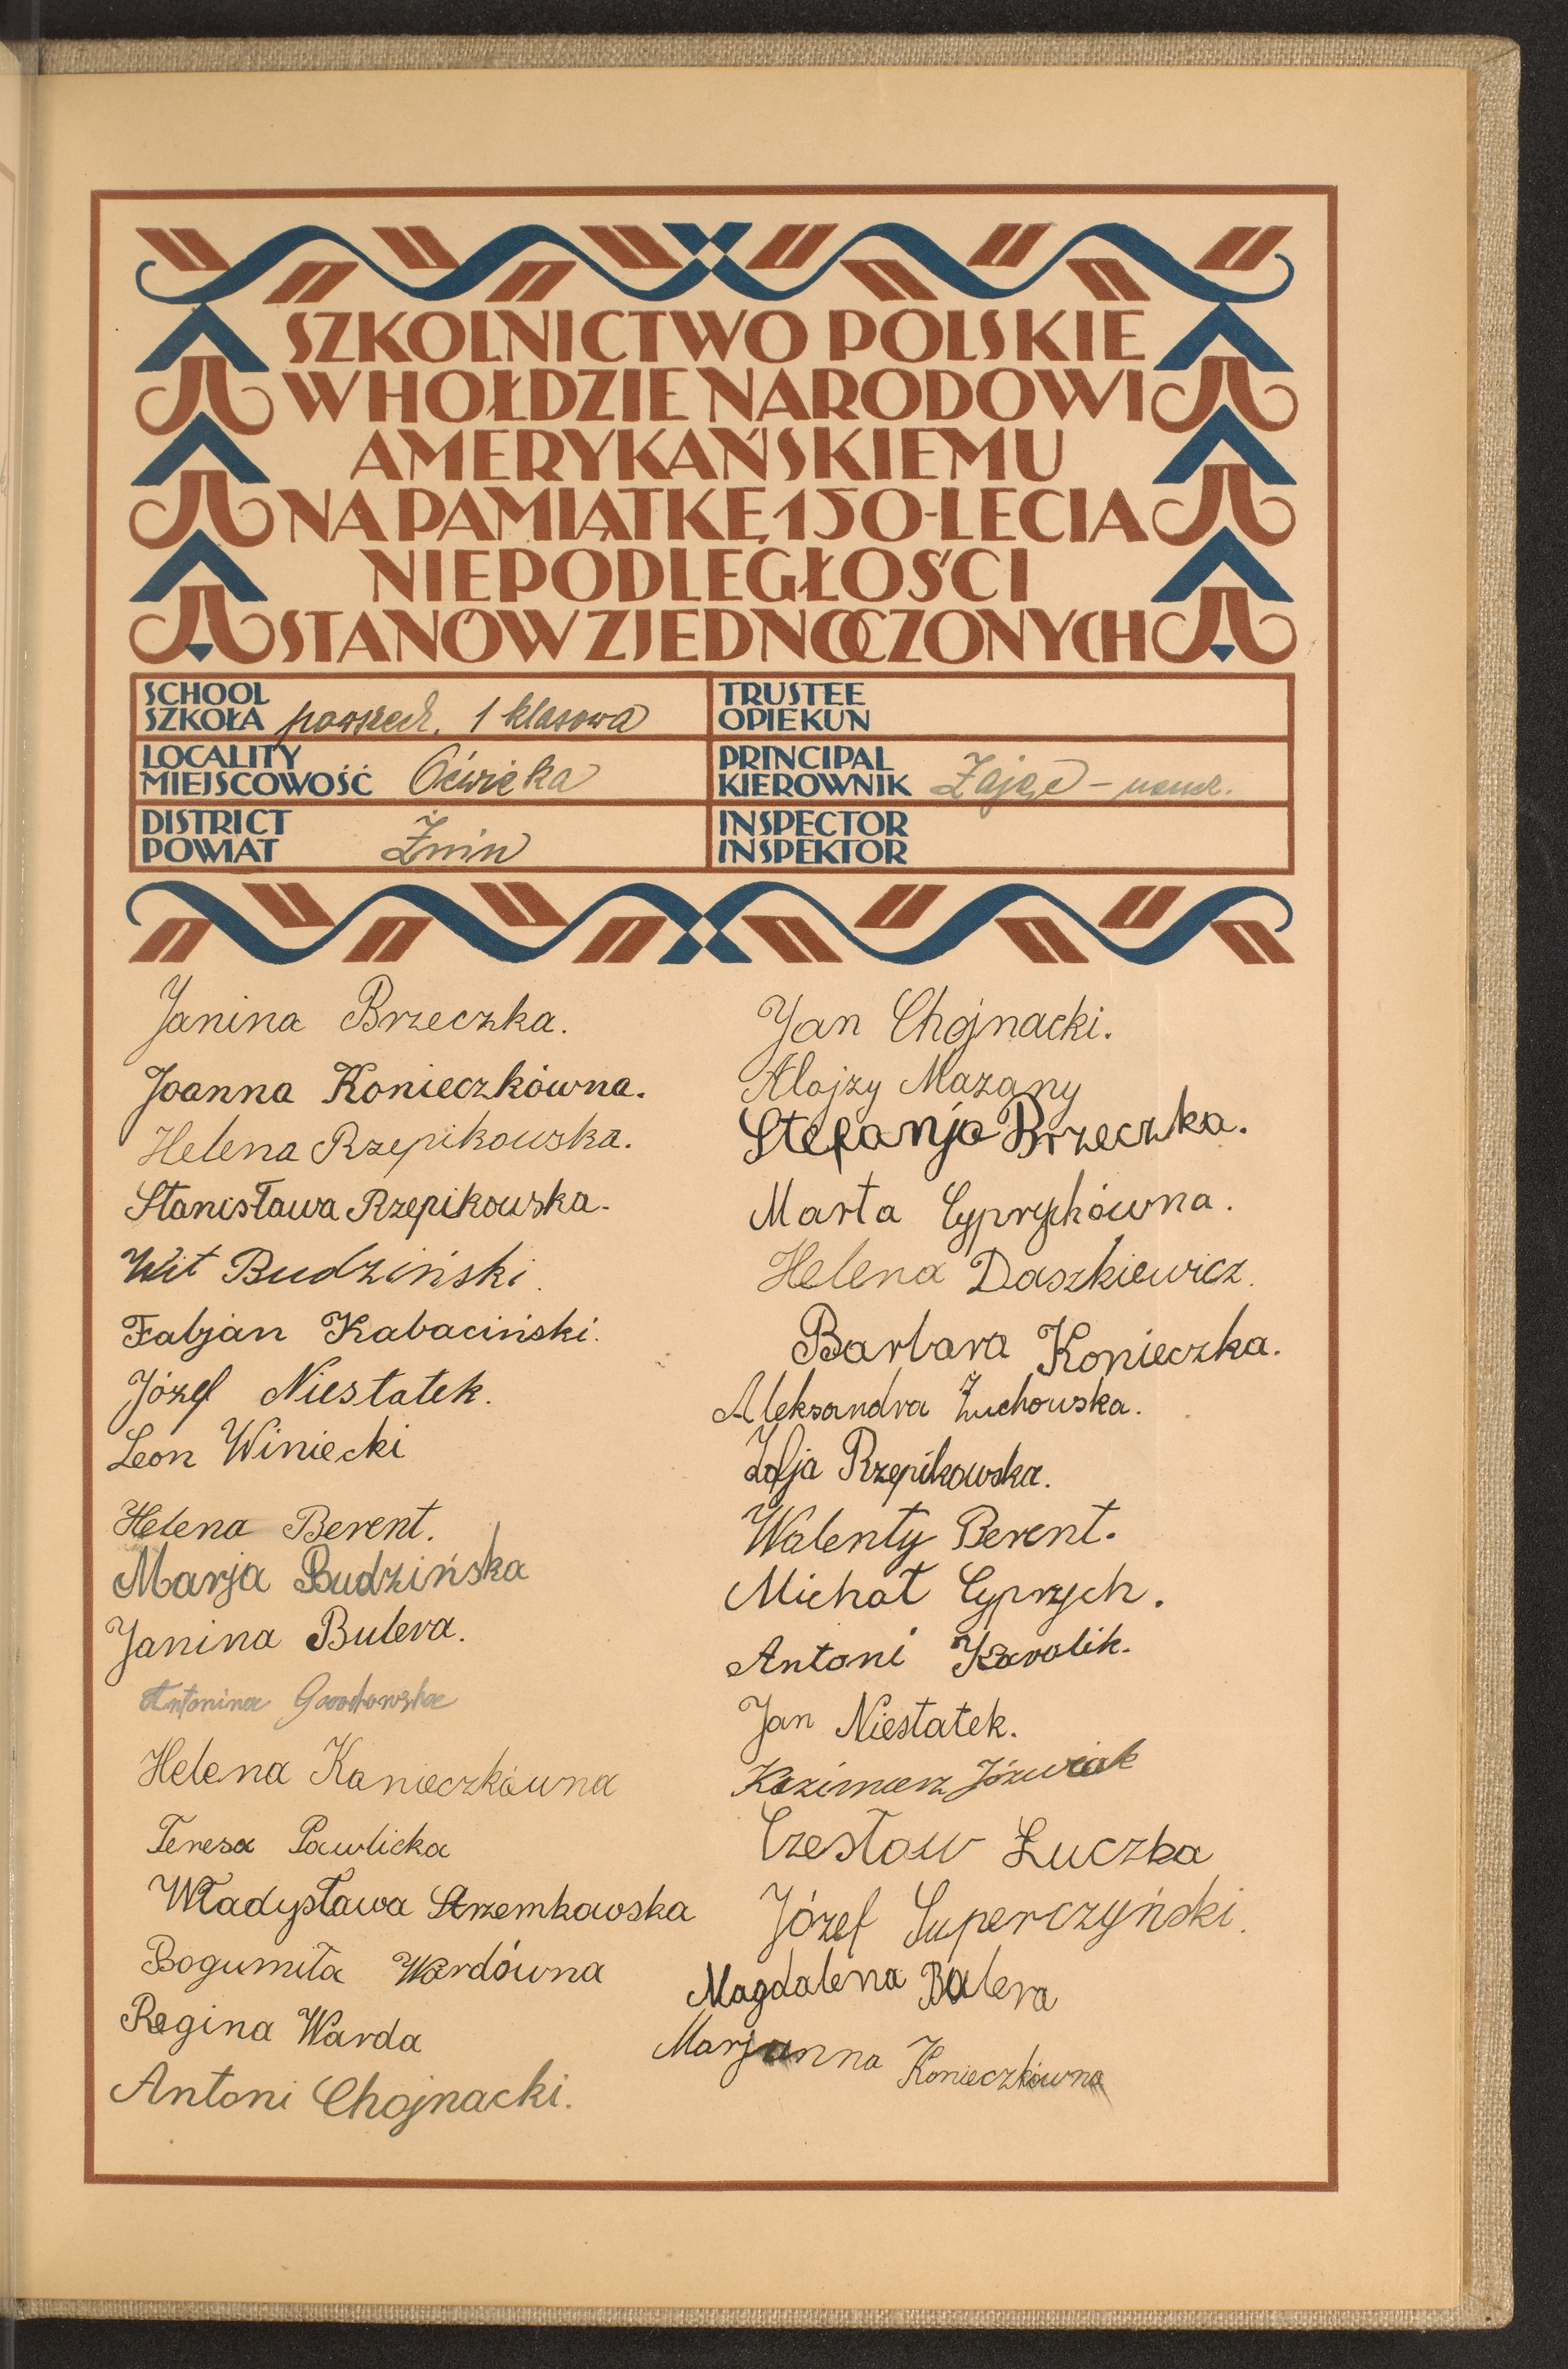 SZKOLNICTWO POLSKIE
W HOŁDZIE NARODOWI
AMERYKAŃSKIEMU
NA PAMIĄTKĘ 150-LECIA
NIEPODLEGŁOŚCI
STANÓW ZJEDNOCZONYCH
SCHOOL
SZKOŁA powszech. 1 klasowa
LOCALITY
MIEJSCOWOŚĆ Oćwieka
DISTRICT
POWIAT Żnin
TRUSTEE
OPIEKUN
PRINCIPAL
KIEROWNIK Zając - naucz.
INSPECTOR
INSPEKTOR
Janina Brzeczka.
Joanna Konieczkówna.
Helena Rzepikowska.
Stanisława Rzepikowska.
Wit Budziński.
Fabjan Kabaciński.
Józef Niestatek.
Leon Winiecki
Helena Berent.
Marja Budzińska
Janina Bulera.
Antonina
Helena Konieczkówna
Teresa Pawlicka
Władysława Strzemkowska
Bogumiła Wardówna
Regina Warda
Antoni Chojnacki.
Jan Chojnacki.
Alojzy Mazany
Stefanja Brzeczka.
Marta Cyprychówna.
Helena Daszkiewicz.
Barbara Konieczka.
Aleksandra Żuchowska.
Zofja Rzepikowska.
Walenty Berent.
Michał Cyprych.
Antoni Karolik.
Jan Niestatek.
Kazimierz Józwiak
Czesław Łuczka
Józef Superczyński.
Magdalena Balera
Marjanna Konieczkówna